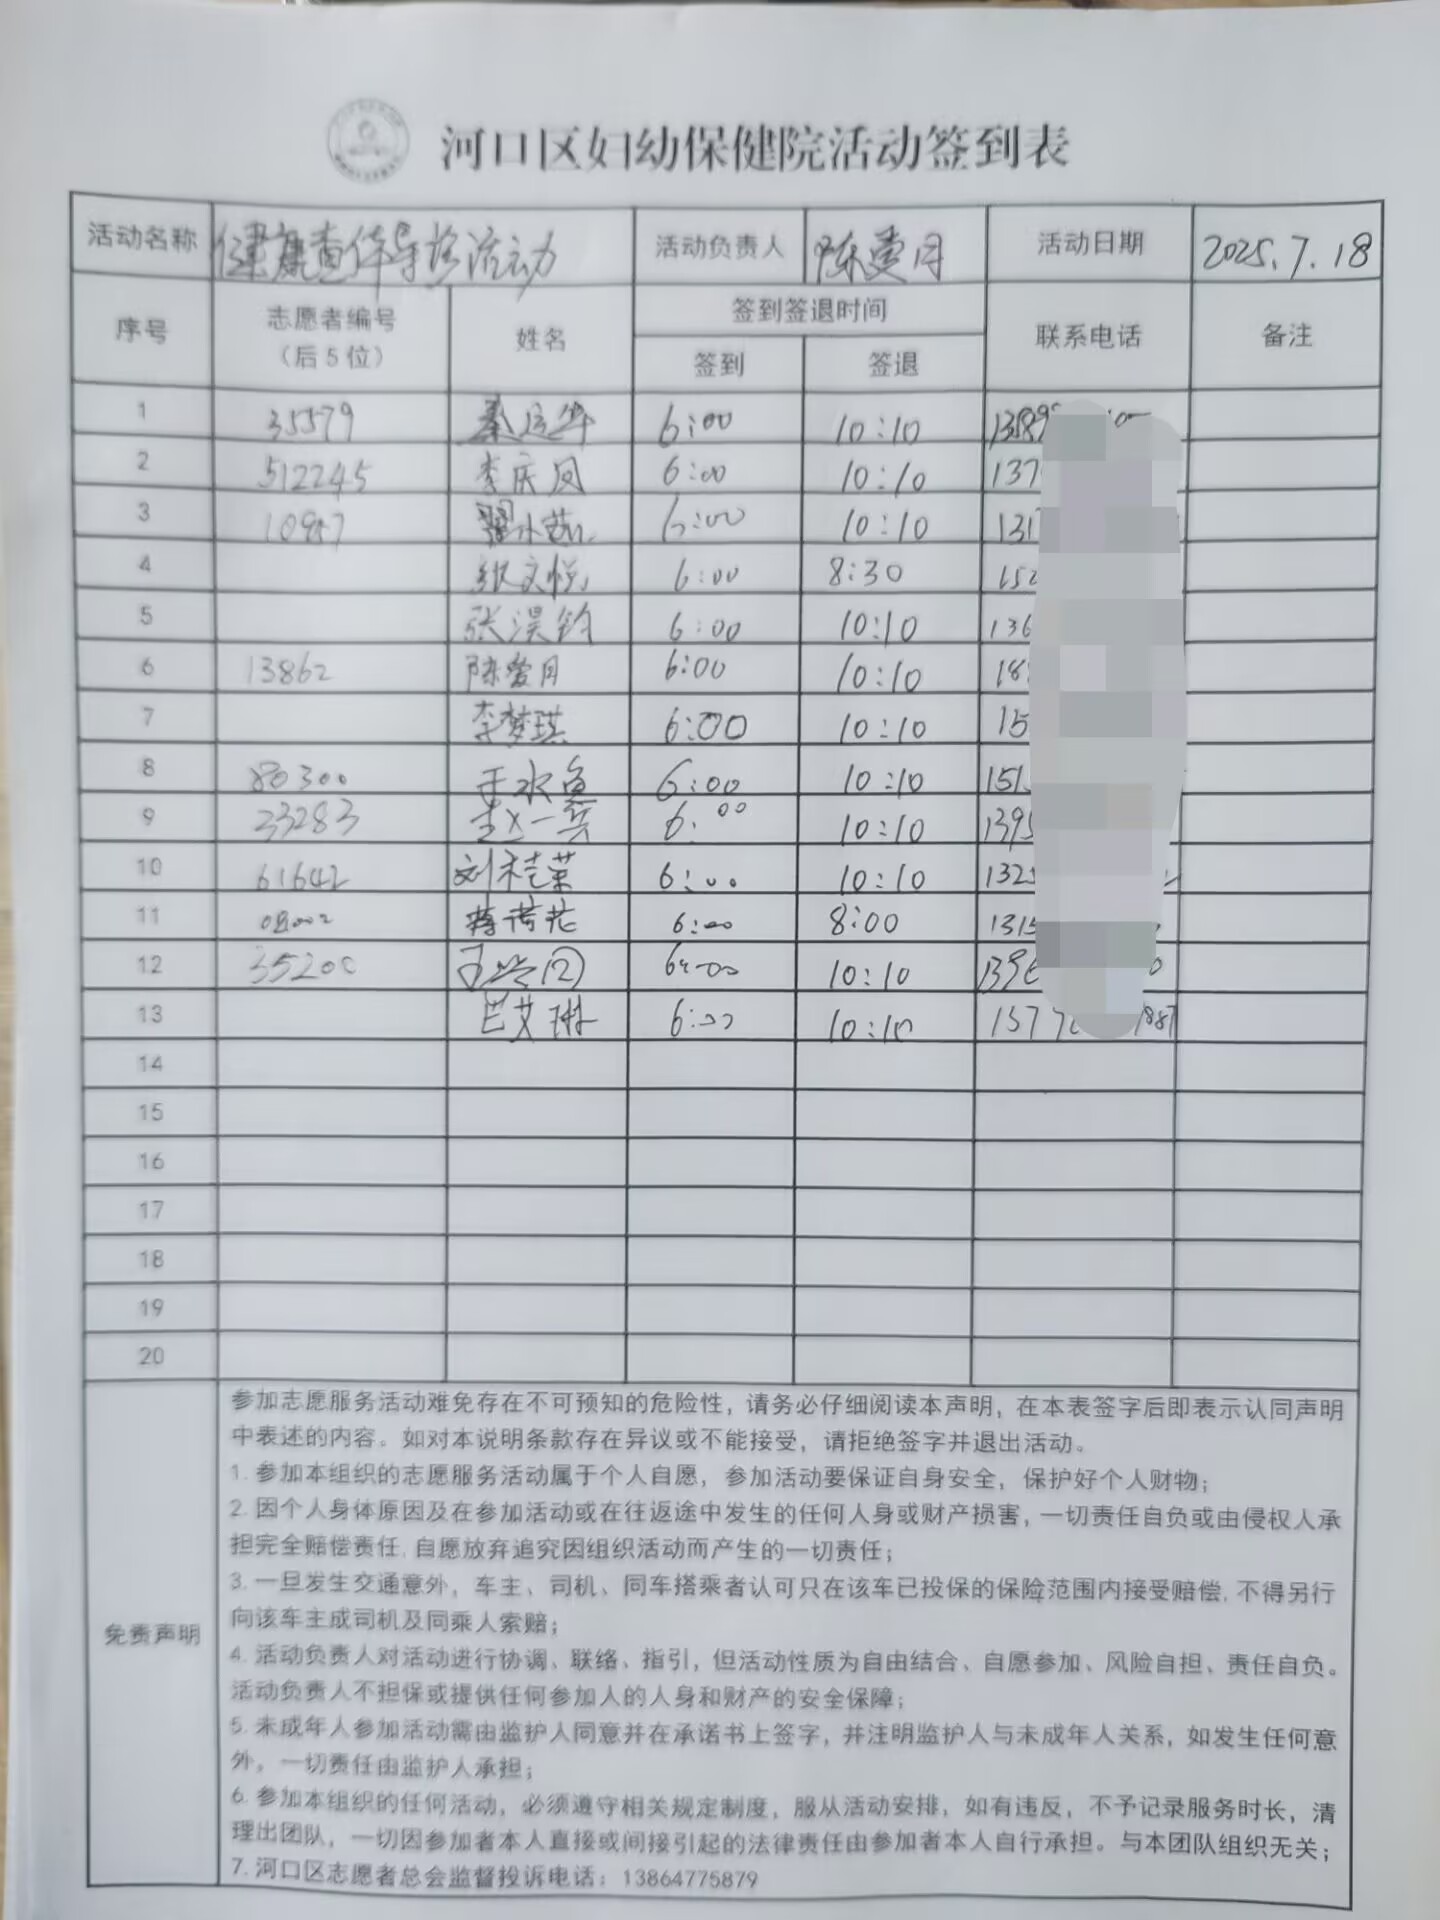 河口区妇幼保健院活动签到表
活动名称 健康查体导诊活动 活动负责人 陈爱月 活动日期 2025.7.18
序号 志愿者编号 姓名 签到签退时间 联系电话 备注
（后5位） 签到 签退
1 35579 秦运华 6:00 10:10
2 512245 李庆凤 6:00 10:10 137
3 6:00 10:10 131
4 张文悦 6:00 8:30 152
5 张淏钧 6:00 10:10 136
6 13862 陈爱月 6:00 10:10 18
7 李梦琪 6:00 10:10 15
8 80300 6:00 10:10 151
9 33283 赵一兵 6:00 10:10 139
10 61642 刘桂荣 6:00 10:10 132
11 蒋荷花 6:00 8:00 1315
12 35200 6:00 10:10 1396
13 巴艾琳 6:00 10:10 157
14
15
16
17
18
19
20
免责声明
参加志愿服务活动难免存在不可预知的危险性，请务必仔细阅读本声明，在本表签字后即表示认同声明
中表述的内容。如对本说明条款存在异议或不能接受，请拒绝签字并退出活动。
1. 参加本组织的志愿服务活动属于个人自愿，参加活动要保证自身安全，保护好个人财物；
2. 因个人身体原因及在参加活动或在往返途中发生的任何人身或财产损害，一切责任自负或由侵权人承
担完全赔偿责任，自愿放弃追究因组织活动而产生的一切责任；
3. 一旦发生交通意外，车主、司机、同车搭乘者认可只在该车已投保的保险范围内接受赔偿，不得另行
向该车主成司机及同乘人索赔；
4. 活动负责人对活动进行协调、联络、指引，但活动性质为自由结合、自愿参加、风险自担、责任自负。
活动负责人不担保或提供任何参加人的人身和财产的安全保障；
5. 未成年人参加活动需由监护人同意并在承诺书上签字，并注明监护人与未成年人关系，如发生任何意
外，一切责任由监护人承担；
6. 参加本组织的任何活动，必须遵守相关规定制度，服从活动安排，如有违反，不予记录服务时长，清
理出团队，一切因参加者本人直接或间接引起的法律责任由参加者本人自行承担。与本团队组织无关；
7. 河口区志愿者总会监督投诉电话：13864775879